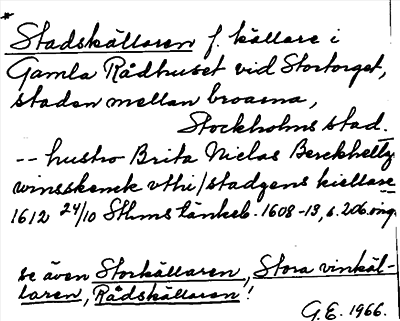 *
Stadskällaren f. källare i
Gamla Rådhuset vid Stortorget,
staden mellan broarna,
Stockholms stad.
-- hustro Brita Niclas Berckhelty
winsskenck vthi/stadgens kiellare
1612 24/10 Sthms tänkeb. 1608-13, s. 206. ing.
se även Storkällaren, Stora vinkäl-
laren, Rådskällaren!
G.E. 1966.